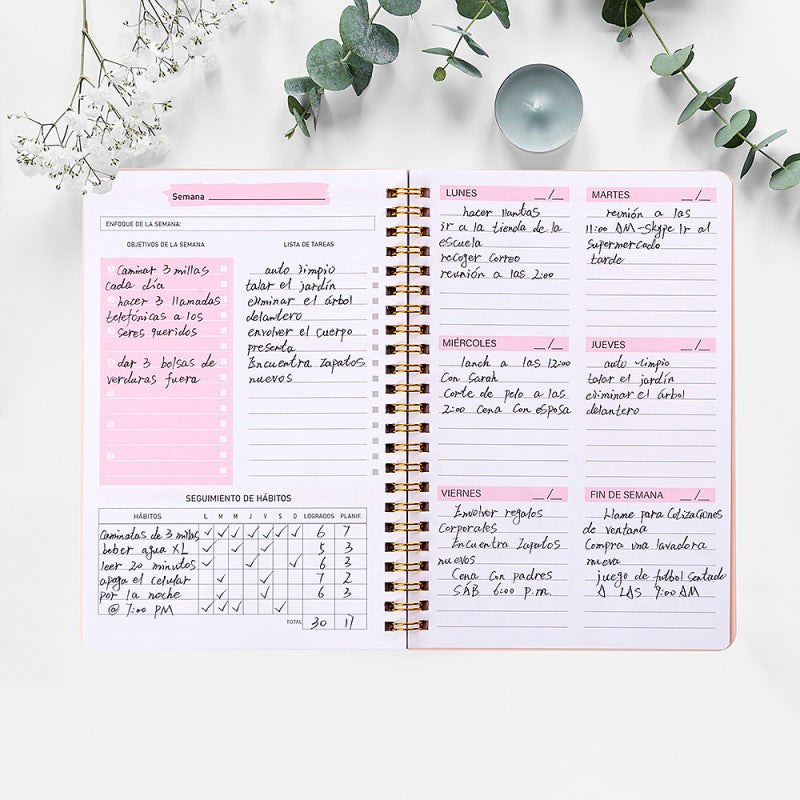 Semana
ENFOQUE DE LA SEMANA:
OBJETIVOS DE LA SEMANA
1 Caminar 3 millas
cada día
2 hacer 3 llamadas
telefónicas a los
3 seres queridos
4 dar 3 bolsas de
verduras fuera
5
6
7
LISTA DE TAREAS
auto limpio
talar el jardín
eliminar el árbol
delantero
envolver el cuerpo
presenta
Encuentra Zapatos
nuevos
SEGUIMIENTO DE HÁBITOS
HÁBITOS L M M J V S D LOGRADOS PLANIF.
Caminatas de 3 millas ✓ ✓ ✓ ✓ ✓ ✓ ✓ 6 7
beber agua XL ✓ ✓ ✓ 5 3
leer 20 minutos ✓ ✓ ✓ 6 3
apaga el celular ✓ ✓ 7 2
por la noche ✓ ✓ 6 3
@ 7:00 PM ✓ ✓ ✓ ✓
TOTAL 30 17
LUNES __/__
hacer llantas
ir a la tienda de la
escuela
recoger correo
reunión a las 2:00
MARTES __/__
reunión a las
11:00 AM -Skype Ir al
supermercado
tarde
MIÉRCOLES __/__
lanch a las 12:00
Con Sarah
Corte de pelo a las
2:00 Cena Con esposa
JUEVES __/__
auto limpio
talar el jardín
eliminar el árbol
delantero
VIERNES __/__
Envolver regalos
Corporales
Encuentra Zapatos
nuevos
Cena con padres
SÁB 6:00 p.m.
FIN DE SEMANA __/__
Llame para Cotizaciones
de ventana
Compra una lavadora
nueva
juego de futbol Sentado
A LAS 9:00 AM